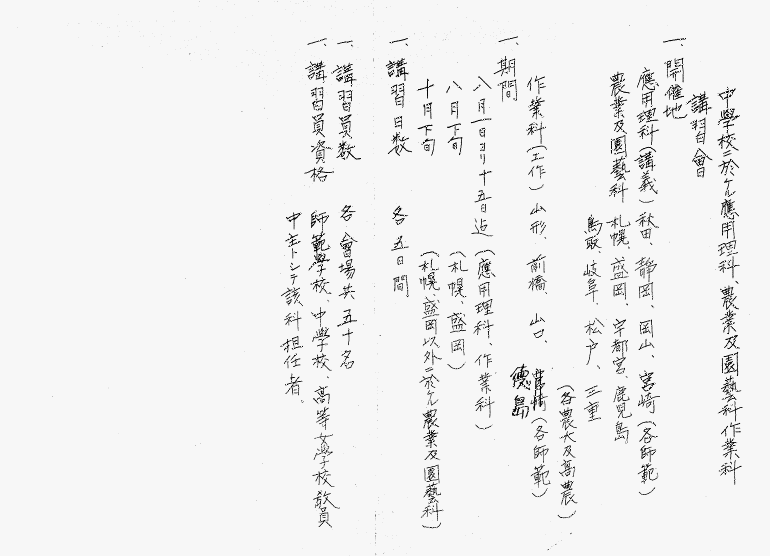 中學校ニ於ケル應用理科、農業及園藝科作業科
講習會
一、開催地
應用理科(講義)秋田、靜岡、岡山、宮崎(各師範)
農業及園藝科 札幌、盛岡、宇都宮、鹿児島
鳥取、岐阜、松戸、三重
(各農大及高農)
作業科(工作)山形、前橋、山口、
德島(各師範)
一、期間
八月一日ヨリ十五日迄(應用理科、作業科)
八月下旬 (札幌、盛岡)
十月下旬 (札幌、盛岡以外ニ於ケル農業及園藝科)
一、講習日数 各五日間
一、講習員数 各會場共五十名
一、講習員資格 師範學校、中學校、高等女學校教員
中主トシテ該科担任者